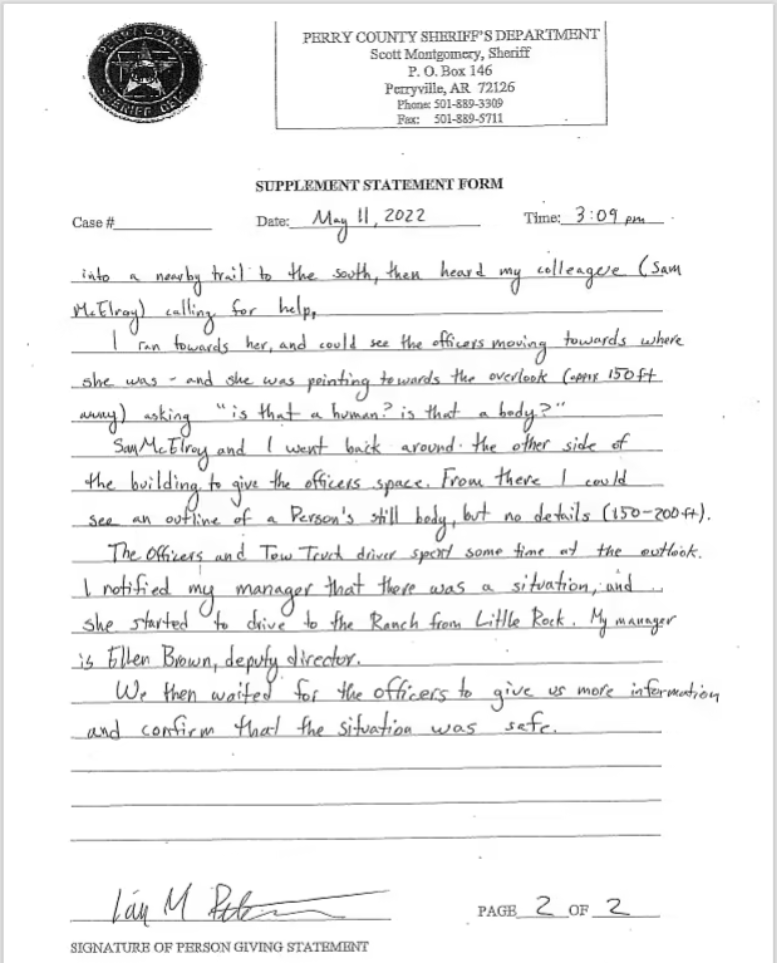 PERRY COUNTY
SHERIFF DEPT
PERRY COUNTY SHERIFF'S DEPARTMENT
Scott Montgomery, Sheriff
P. O. Box 146
Perryville, AR 72126
Phone: 501-889-3309
Fax: 501-889-5711
SUPPLEMENT STATEMENT FORM
Case # Date: May 11, 2022 Time: 3:09 pm
into a nearby trail to the south, then heard my colleague (Sam
McElroy) calling for help,
I ran towards her, and could see the officers moving towards where
she was - and she was pointing towards the overlook (approx 150ft
away) asking "is that a human? is that a body?"
Sam McElroy and I went back around the other side of
the building to give the officers space. From there I could
see an outline of a Person's still body, but no details (150-200ft).
The Officers and Tow Truck driver spent some time at the outlook.
I notified my manager that there was a situation, and
she started to drive to the Ranch from Little Rock. My manager
is Ellen Brown, deputy director.
We then waited for the officers to give us more information
and confirm that the situation was safe.
Ian M
PAGE 2 OF 2
SIGNATURE OF PERSON GIVING STATEMENT